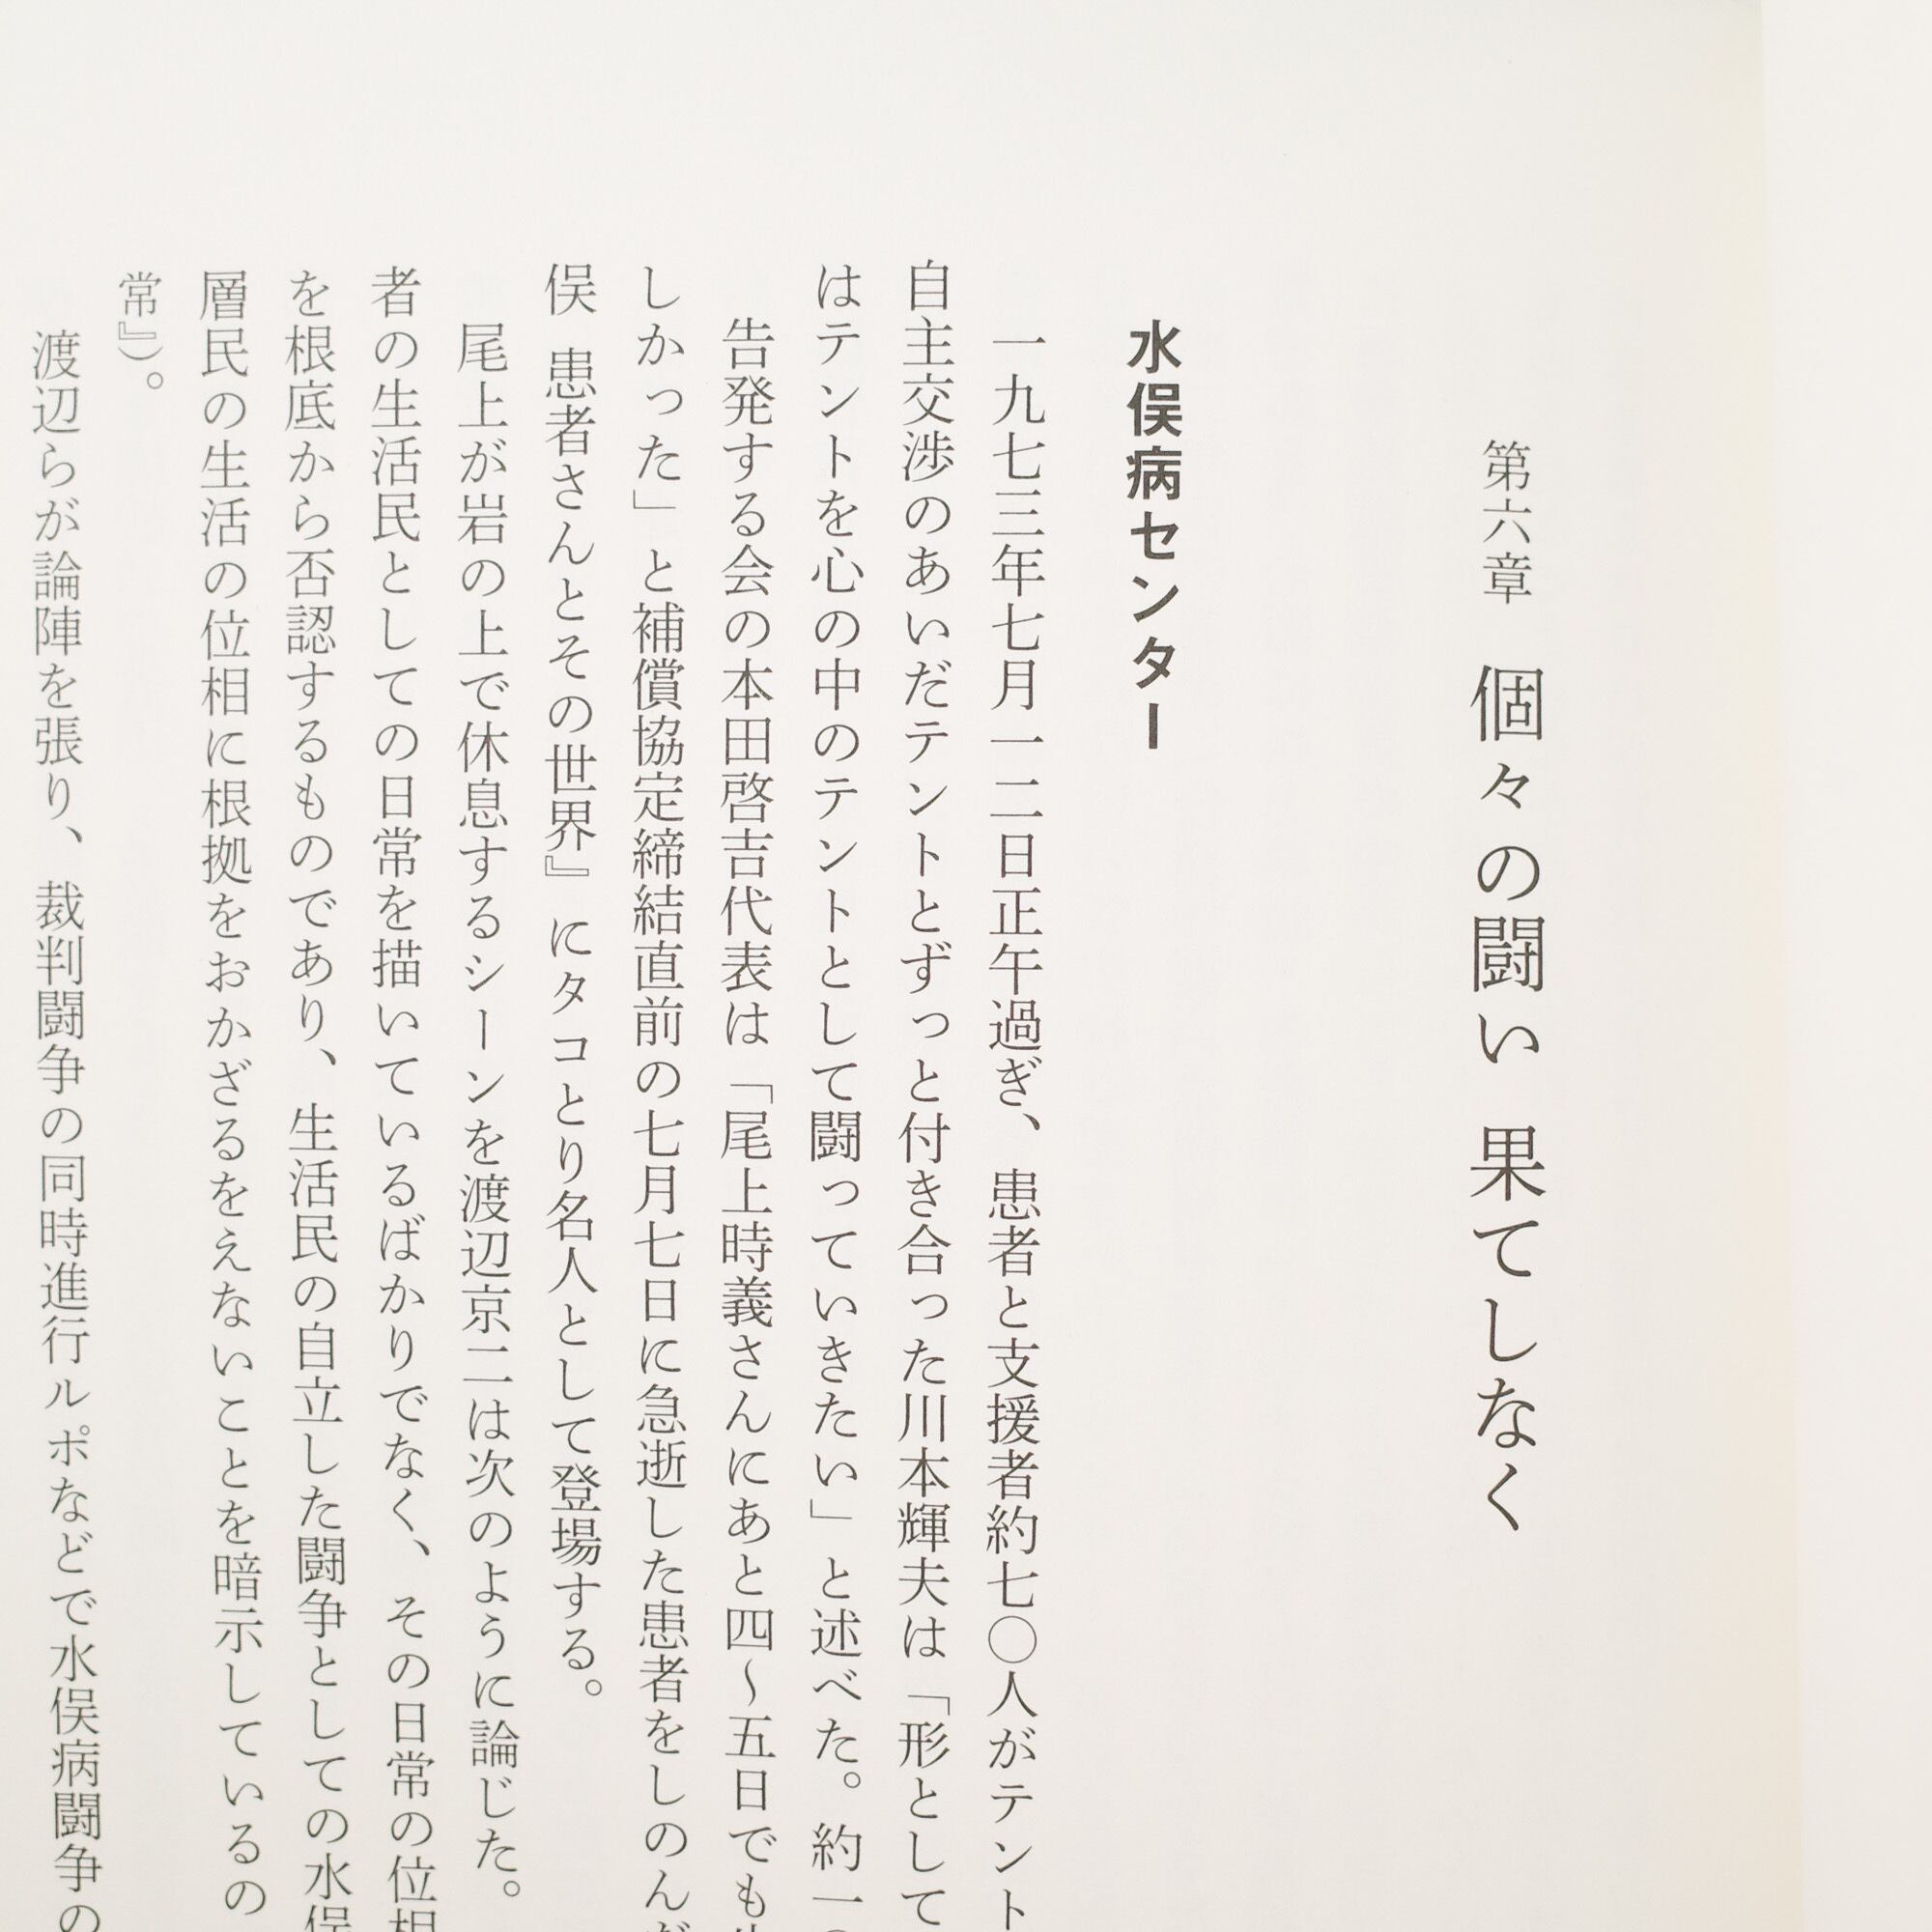 第六章　個々の闘い 果てしなく
水俣病センター
一九七三年七月一二日正午過ぎ、患者と支援者約七〇人がテント
自主交渉のあいだテントとずっと付き合った川本輝夫は「形として
はテントを心の中のテントとして闘っていきたい」と述べた。約一
告発する会の本田啓吉代表は「尾上時義さんにあと四〜五日でも
しかった」と補償協定締結直前の七月七日に急逝した患者をしのん
俣 患者さんとその世界』にタコとり名人として登場する。
尾上が岩の上で休息するシーンを渡辺京二は次のように論じた。
者の生活民としての日常を描いているばかりでなく、その日常の位相
を根底から否認するものであり、生活民の自立した闘争としての水俣
層民の生活の位相に根拠をおかざるをえないことを暗示しているの
常』）。
渡辺らが論陣を張り、裁判闘争の同時進行ルポなどで水俣病闘争の